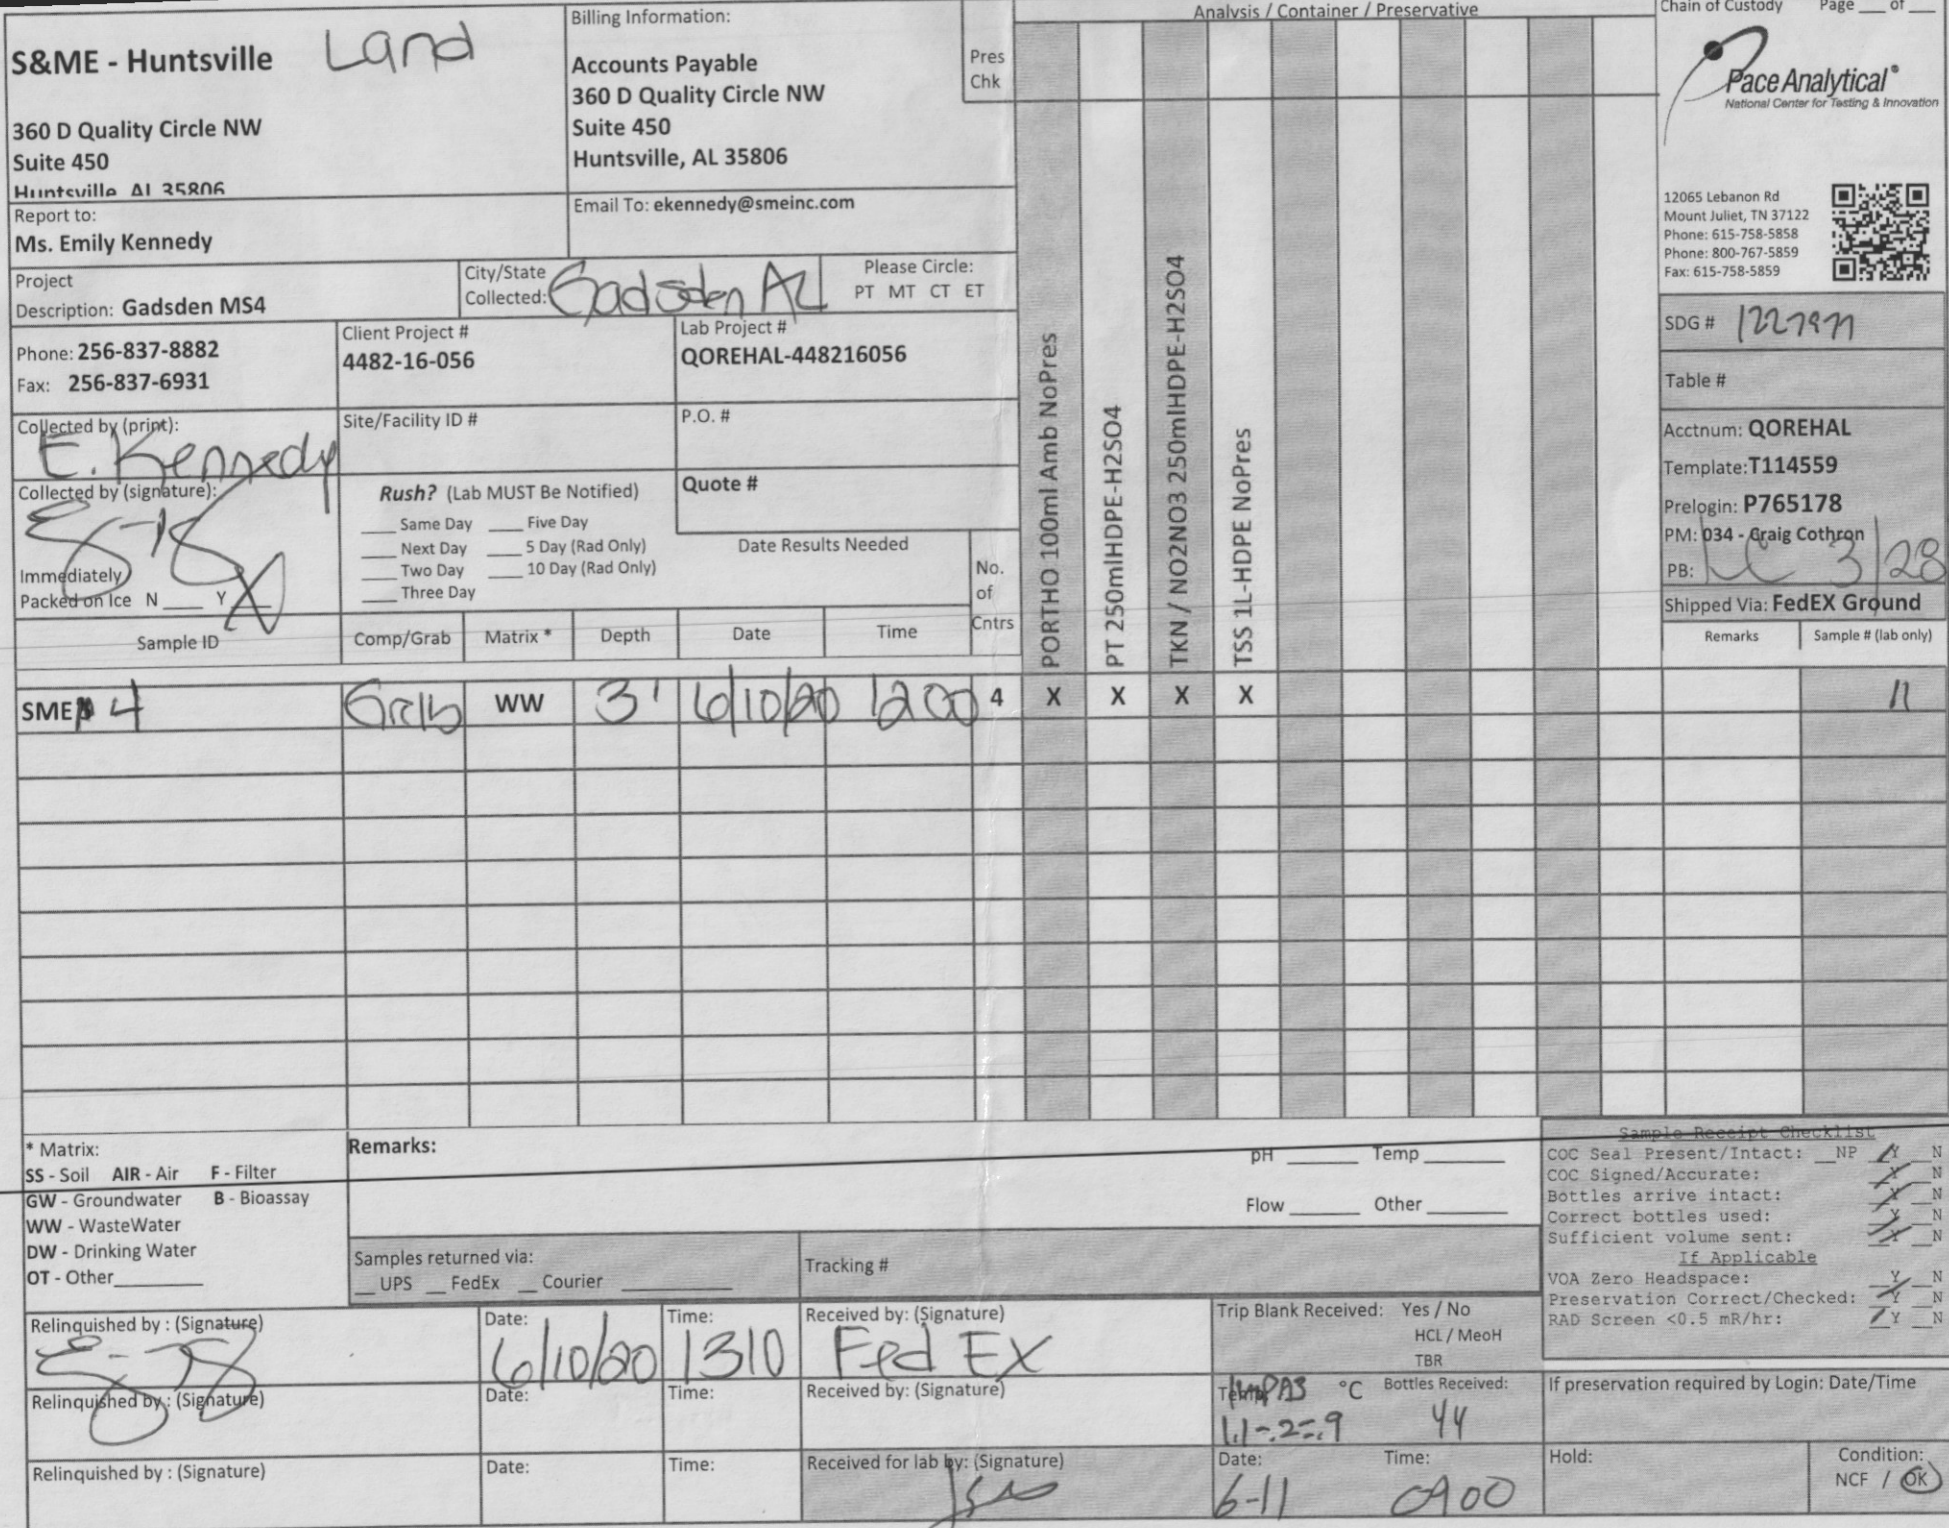 S&ME - Huntsville Land
360 D Quality Circle NW
Suite 450
Huntsville, AL 35806
Billing Information:
Accounts Payable
360 D Quality Circle NW
Suite 450
Huntsville, AL 35806
Pres
Chk
Analysis / Container / Preservative
Chain of Custody Page ___ of ___
Pace Analytical®
National Center for Testing & Innovation
12065 Lebanon Rd
Mount Juliet, TN 37122
Phone: 615-758-5858
Phone: 800-767-5859
Fax: 615-758-5859
Report to:
Ms. Emily Kennedy
Email To: ekennedy@smeinc.com
Project
Description: Gadsden MS4
City/State
Collected: Gadsden AL
Please Circle:
PT MT CT ET
Phone: 256-837-8882
Fax: 256-837-6931
Client Project #
4482-16-056
Lab Project #
QOREHAL-448216056
Collected by (print):
E. Kennedy
Site/Facility ID #
P.O. #
Collected by (signature):
Immediately
Packed on Ice N ____ Y X
Rush? (Lab MUST Be Notified)
___ Same Day ___ Five Day
___ Next Day ___ 5 Day (Rad Only)
___ Two Day ___ 10 Day (Rad Only)
___ Three Day
Quote #
Date Results Needed
No.
of
Cntrs
PORTHO 100ml Amb NoPres
PT 250mlHDPE-H2SO4
TKN / NO2NO3 250mlHDPE-H2SO4
TSS 1L-HDPE NoPres
SDG #
Table #
Acctnum: QOREHAL
Template: T114559
Prelogin: P765178
PM: 034 - Craig Cothron
PB: 3/28
Shipped Via: FedEX Ground
Sample ID Comp/Grab Matrix * Depth Date Time Remarks Sample # (lab only)
SME 4 Grab WW 3' 6/10/20 1200 4 X X X X 11
* Matrix:
SS - Soil AIR - Air F - Filter
GW - Groundwater B - Bioassay
WW - WasteWater
DW - Drinking Water
OT - Other__________
Remarks:
pH ______ Temp ______
Flow ______ Other ______
Samples returned via:
__ UPS __ FedEx __ Courier __________
Tracking #
Sample Receipt Checklist
COC Seal Present/Intact: __NP __Y __N
COC Signed/Accurate: __Y __N
Bottles arrive intact: __Y __N
Correct bottles used: __Y __N
Sufficient volume sent: __Y __N
If Applicable
VOA Zero Headspace: __Y __N
Preservation Correct/Checked: __Y __N
RAD Screen <0.5 mR/hr: __Y __N
Relinquished by : (Signature)
Date: 6/10/20
Time: 1310
Received by: (Signature)
Fed EX
Trip Blank Received: Yes / No
HCL / MeoH
TBR
Relinquished by : (Signature)
Date:
Time:
Received by: (Signature)
Temp: °C
1.1-.2=.9
Bottles Received:
44
If preservation required by Login: Date/Time
Relinquished by : (Signature)
Date:
Time:
Received for lab by: (Signature)
Date: 6-11
Time: 0900
Hold:
Condition:
NCF / OK